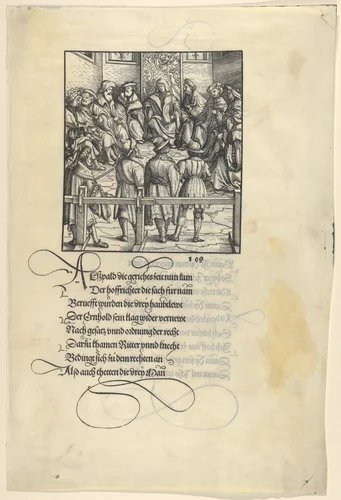 109
Als pald die gerichts zeit nun kam
Der hoffrichter die sach für nam
Beruefft wurden die drey haubtlewt
Der Ernhold sein klag wider vernewt
Nach gesatz vnnd ordnung der recht
Darzů khamen Ritter vnnd knecht
Bedingt sich zu dem rechten an
Also auch thetten die drey Man